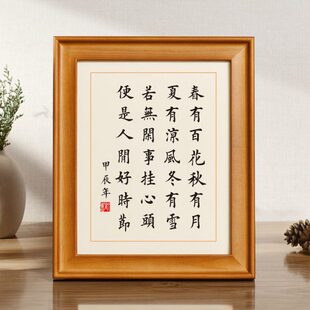 春有百花秋有月
夏有涼風冬有雪
若無閑事挂心頭
便是人間好時節
甲辰年